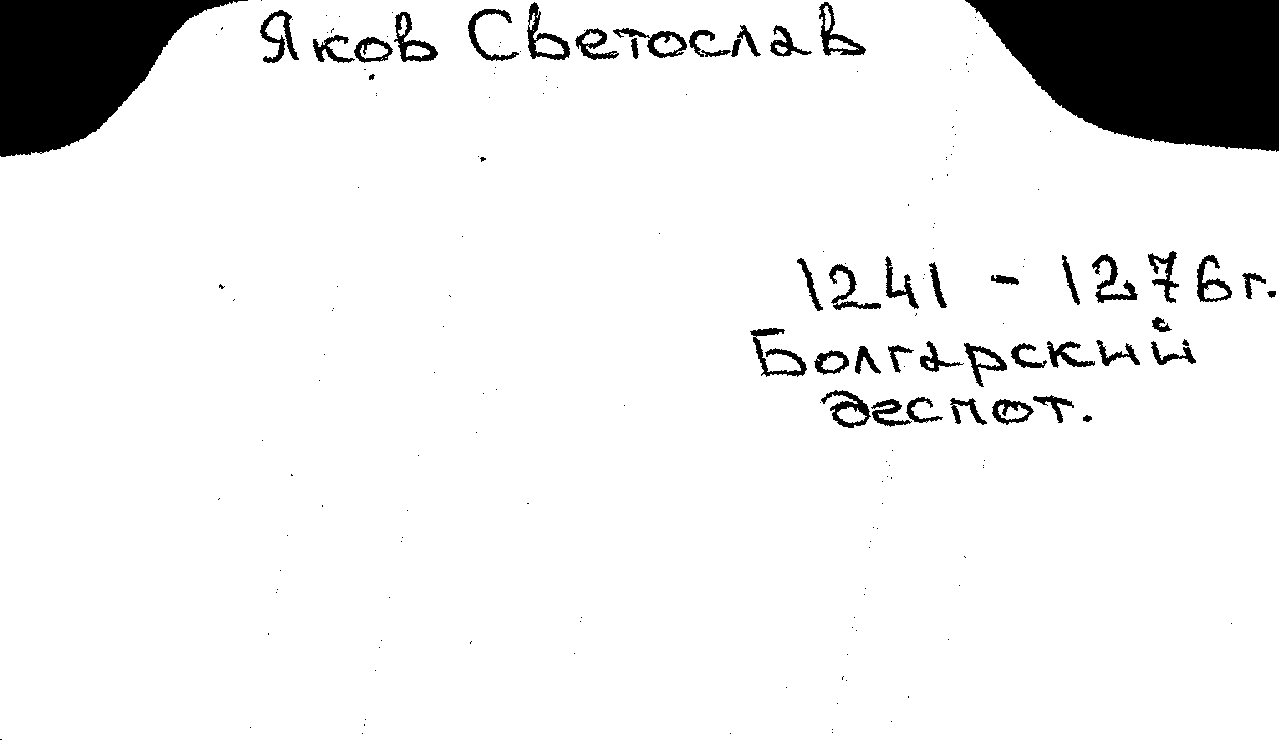 Яков Светослав
1241 - 1276 г.
Болгарский
деспот.